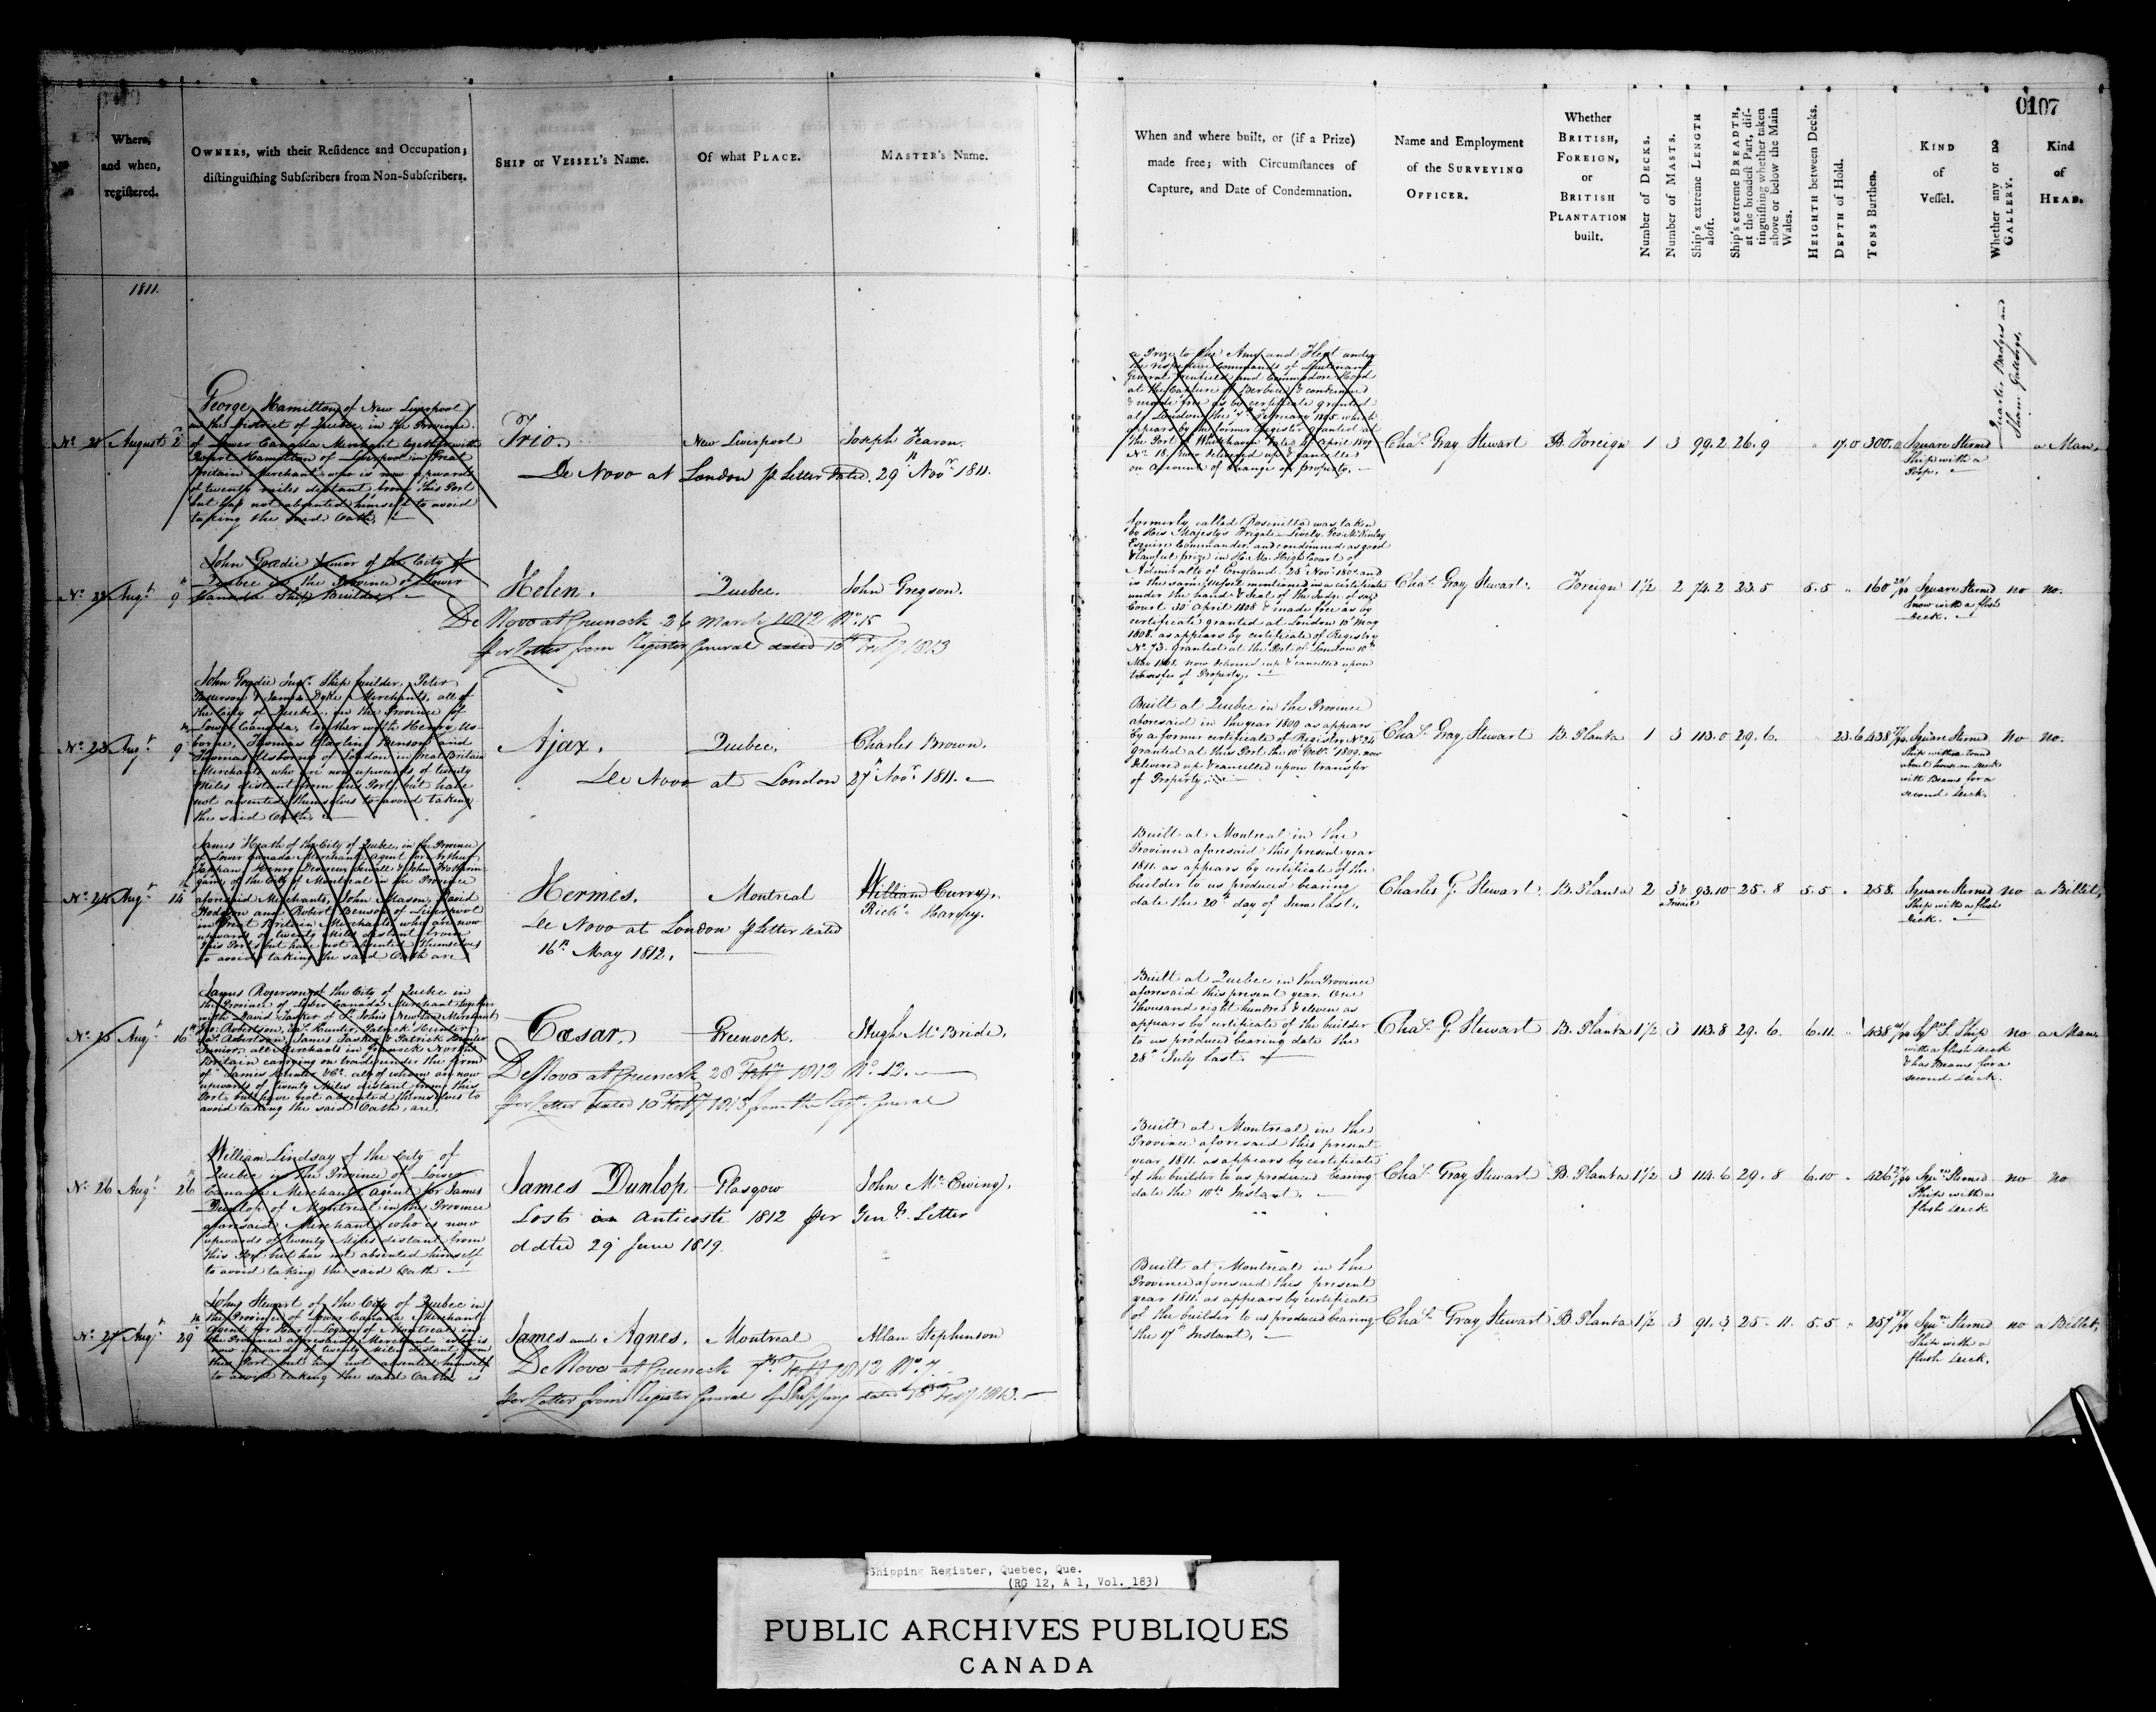 0107
Where,
and when,
registered.
OWNERS, with their Residence and Occupation;
distinguishing Subscribers from Non-Subscribers.
SHIP or VESSEL's Name.
Of what PLACE.
MASTER's Name.
When and where built, or (if a Prize)
made free; with Circumstances of
Capture, and Date of Condemnation.
Name and Employment
of the SURVEYING
OFFICER.
Whether
BRITISH,
FOREIGN,
or
BRITISH
PLANTATION
built.
Number of DECKS.
Number of MASTS.
Ship's extreme LENGTH
aloft.
Ship's extreme BREADTH,
at the broadest Part, dis-
tinguishing whether taken
above or below the Main
Wales.
HEIGHTH between Decks.
DEPTH of Hold.
TONS Burthen.
KIND
of
Vessel.
Whether any or no
GALLERY.
Kind
of
HEAD.
1811.
No. 21 August 2d
George Hamilton of New Liverpool
in the District of Quebec, in the Province
of Lower Canada Merchant together with
Robert Hamilton of Liverpool in Great
Britain Merchant who is now upwards
of twenty miles distant from this Port
but has not absented himself to avoid
taking the said Oath,
Trio.
New Liverpool
Joseph Fearon.
De Novo at London p Letter Dated 29th Novr 1811.
a Prize to the Army and Fleet under
the respective Commands of Lieutenant
General and Commodore Hood
at the Capture of Berbice & condemned
& made free as by certificate granted
at London the February 1805 which
appears by former Register granted at
the Port of Whitehaven dated April 1809
No. 18. now delivered up & cancelled
on Account of change of property.
Chas. Gray Stewart
B. Foreign
1 3 99.2 26.9 17.0 300.
Square Sterned
Ship with a
Poop.
Quarter Badges and
Sham Gallerys.
a Man,
No. 22 Augt. 9th
John Goudie Junior of the City of
Quebec in the Province of Lower
Canada Ship Builder,
Helen.
Quebec.
John Gregson.
De Novo at Greenock 26 March 1812 No. 15
per Letter from Register General dated 15th Feby 1813
formerly called Rosinetta was taken
by His Majesty's Frigate Lively Geo. McKinley
Esquire Commander and condemned as good
& lawful prize in H. M. High Court of
Admiralty of England 28th Novr. and
is the same Vessel mentioned in a certificate
under the hand & Seal of the Judge of said
Court 30 April 1808 & made free as by
certificate granted at London 10th May
1808. as appears by certificate of Registry
No. 73. granted at the Port of London 10th
May 1808. now delivered up & cancelled upon
transfer of Property.
Chas. Gray Stewart.
Foreign
1½ 2 74.2 23.5 5.5 160
Square Sterned
Snow with a flush
Deck.
no
no.
No. 23 Augt. 9th
John Goudie Junr. Ship builder, Peter
Patterson & James Dyke Merchants, all of
the City of Quebec in the Province of
Lower Canada, together with Henry Us-
borne, Thomas Starling Benson and
Thomas Usborne of London in Great Britain
Merchants who are now upwards of twenty
Miles distant from this Port, but have
not absented themselves to avoid taking
the said Oath,
Ajax.
Quebec.
Charles Brown.
De Novo at London 27th Novr. 1811.
Built at Quebec in the Province
aforesaid in the year 1809 as appears
by a former certificate of Registry No 24
granted at this Port the 10th Octr. 1809. now
delivered up & cancelled upon transfer
of Property.
Chas. Gray Stewart
B. Planta
1 3 113.0 29.6. 23.6 438
Square Sterned
Ship with a round
about house on deck
with Beams for a
second Deck.
no
no.
No. 24 Augt. 14th
James Heath of the City of Quebec, in the Province
of Lower Canada Merchant, agent for Arthur
Tappan, Henry Devereux Sewall & John Frothing-
gam of the City of Montreal in the Province
aforesaid Merchants, John Mason, David
Hodgson and Robert Benson of Liverpool
in Great Britain Merchants who are now
upwards of twenty Miles distant from
this Port but have not absented themselves
to avoid taking the said Oath are
Hermes.
Montreal
William Curry.
Richd. Harvey.
De Novo at London p Letter dated
16th May 1812.
Built at Montreal in the
Province aforesaid this present year
1811. as appears by certificate of the
builder to us produced bearing
date the 20th day of June last.
Charles G. Stewart.
B. Planta
2 3 93.10 25.8 5.5 258.
Square Sterned
Ship with a flush
Deck.
no
a Billet,
No. 25 Augt. 16th
James Rogerson of the City of Quebec in
the Province of Lower Canada Merchant together
with David Tasker of St. Johns Newfland Merchant
Robertson, Jas. Hunter, Patrick Hunter
Robertson, James Tasker & Patrick Hunter
Junior, all Merchants in Greenock North
Britain carrying on trade under the firm
of James Hunter & Co. all of whom are now
upwards of twenty Miles distant from this
Port, but have not absented themselves to
avoid taking the said Oath, are,
Cæsar.
Greenock.
Hugh McBride.
De Novo at Greenock 28 Feby 1812 No. 12.
per Letter dated 15 Feby 1813 from the Regr. General
Built at Quebec in the Province
aforesaid this present year One
thousand eight hundred & eleven as
appears by certificate of the builder
to us produced bearing date the
28th July last.
Chas. G. Stewart
B. Planta
1½ 3 113.8 29.6. 6.11. 438
Sqre. S. Ship
with a flush Deck
& has Beams for a
second Deck.
no
a Man.
No. 26 Augt. 26th
William Lindsay of the City of
Quebec in the Province of Lower
Canada Merchant, agent for James
Dunlop of Montreal in the Province
aforesaid Merchant, who is now
upwards of twenty Miles distant from
this Port but has not absented himself
to avoid taking the said Oath
James Dunlop
Glasgow
John McEwing.
Lost on Anticosti 1812 per Genl. Letter
ddted 29 June 1819.
Built at Montreal in the
Province aforesaid this present
year 1811. as appears by certificate
of the builder to us produced bearing
date the 10th Instant.
Chas. Gray Stewart
B. Planta
1½ 3 114.6 29.8 6.10 426
Squre Sterned
Ship with a
flush Deck
no
no
No. 27 Augt. 29th
John Stewart of the City of Quebec in
the Province of Lower Canada Merchant
Agent for Hart Logan of Montreal in
the Province aforesaid Merchant who is
now upwards of twenty Miles distant from
this Port but has not absented himself
to avoid taking the said Oath is
James and Agnes.
Montreal
Allan Stephenson
De Novo at Greenock 7th Feby 1812 No. 7.
per Letter from Register General of Shipping dated 15th Feby 1813.
Built at Montreal in the
Province aforesaid this present
year 1811. as appears by certificate
of the builder to us produced bearing
the 17th Instant.
Chas. Gray Stewart
B Planta
1½ 3 91.3 25.11. 5.5 257
Squre Sterned
Ship with a
flush Deck.
no
a Billet,
Shipping Register, Quebec, Que.
(RG 12, A 1, Vol. 183)
PUBLIC ARCHIVES PUBLIQUES
CANADA